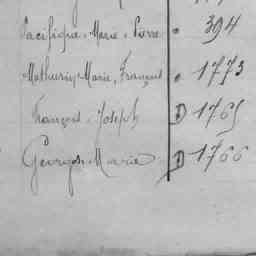 Pacifique Marie Pierre " 394
Mathurin Marie, François " 1773
François Joseph D 1765
Georges Marie D 1766